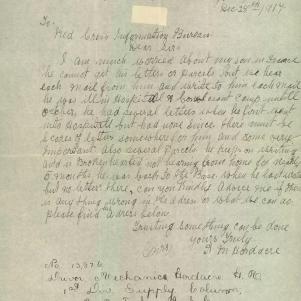 Dec 28th 1917
To
Red Cross Information Bureau
Dear Sirs
I am much worried about my son in France
he cannot get his letters or parcels but we hear
each mail from him and write to him each mail
he was ill in Hospital & convalescent camp until
he had several letters when he first went
into Hospital but had none since there must be
scores of letters somewhere for him and some very
important also several Parcels he keeps on writing
and is Brokenhearted not hearing from home for nearly
5 months he went back to the Base when he last wrote
but no letter there, can you Kindly advise me if there
is anything wrong in the address or what we can do
please find the address below
Trusting something can be done
Yours Truly
Mrs I M Bordacre
No.
Driver Mechanic Bordacre H.
1st Div Supply Column